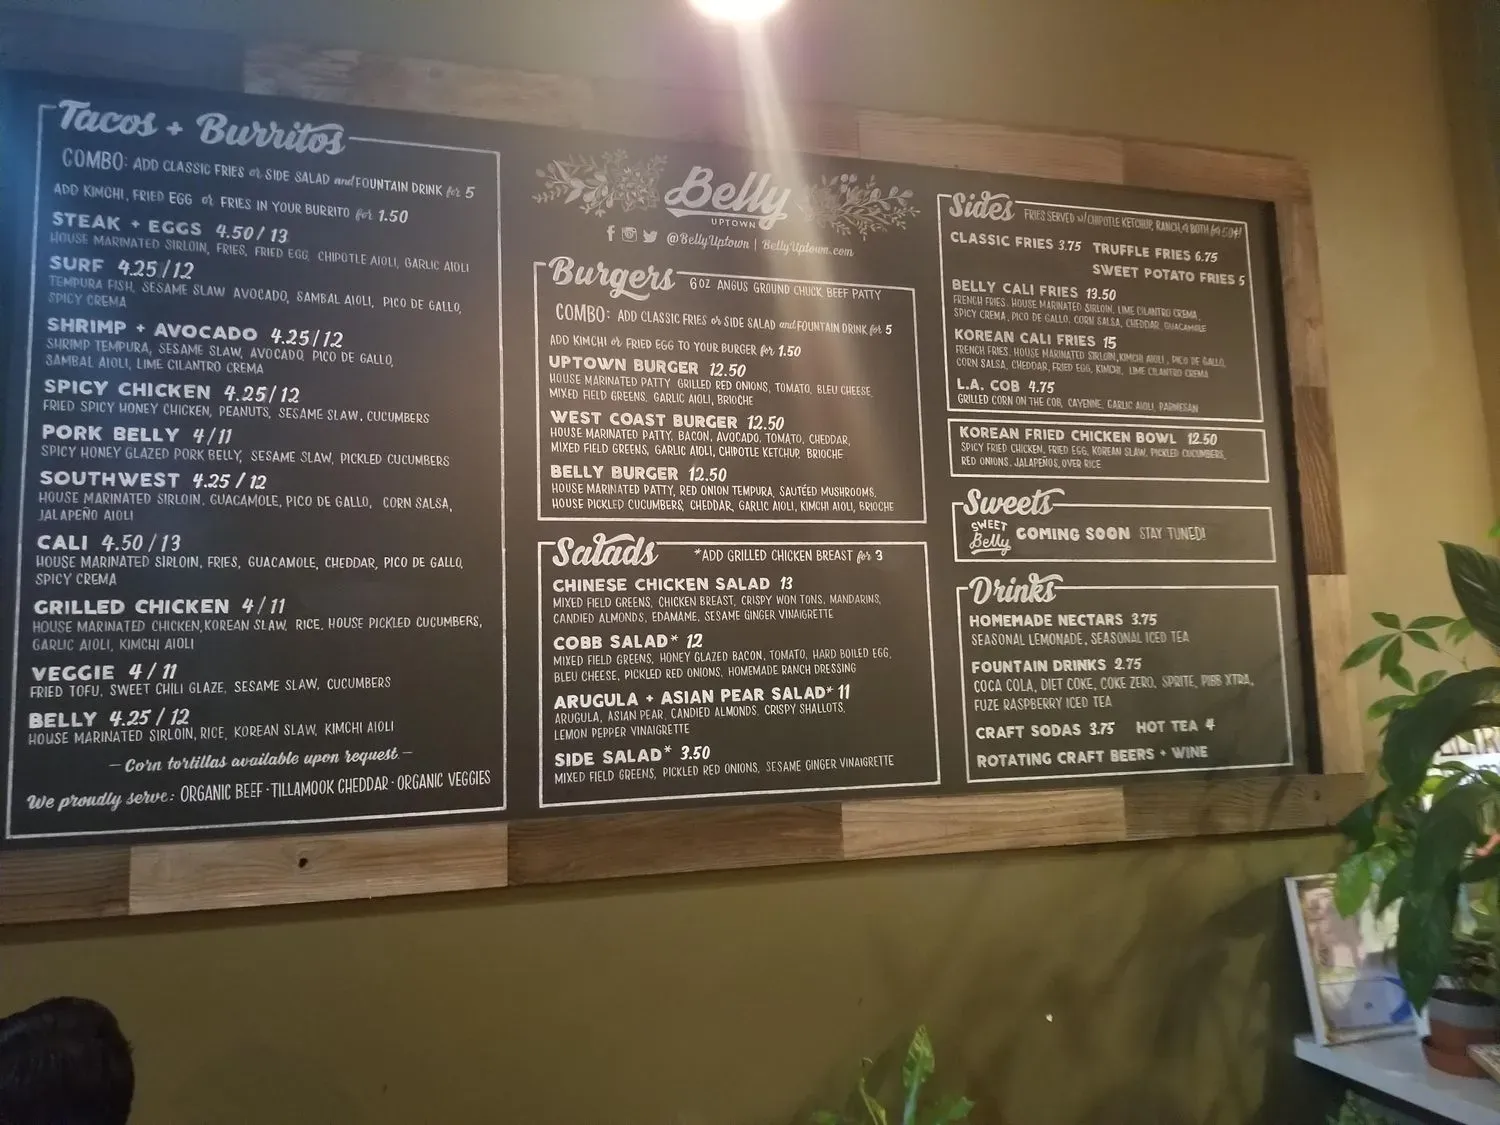 Tacos + Burritos
COMBO: ADD CLASSIC FRIES or SIDE SALAD and FOUNTAIN DRINK for 5
ADD KIMCHI, FRIED EGG or FRIES IN YOUR BURRITO for 1.50
STEAK + EGGS 4.50/13
HOUSE MARINATED SIRLOIN, FRIES, FRIED EGG, CHIPOTLE AIOLI, GARLIC AIOLI
SURF 4.25/12
TEMPURA FISH, SESAME SLAW AVOCADO, SAMBAL AIOLI, PICO DE GALLO,
SPICY CREMA
SHRIMP + AVOCADO 4.25/12
SHRIMP TEMPURA, SESAME SLAW, AVOCADO, PICO DE GALLO,
SAMBAL AIOLI, LIME CILANTRO CREMA
SPICY CHICKEN 4.25/12
FRIED SPICY HONEY CHICKEN, PEANUTS, SESAME SLAW, CUCUMBERS
PORK BELLY 4/11
SPICY HONEY GLAZED PORK BELLY, SESAME SLAW, PICKLED CUCUMBERS
SOUTHWEST 4.25/12
HOUSE MARINATED SIRLOIN, GUACAMOLE, PICO DE GALLO, CORN SALSA,
JALAPEÑO AIOLI
CALI 4.50/13
HOUSE MARINATED SIRLOIN, FRIES, GUACAMOLE, CHEDDAR, PICO DE GALLO,
SPICY CREMA
GRILLED CHICKEN 4/11
HOUSE MARINATED CHICKEN, KOREAN SLAW, RICE, HOUSE PICKLED CUCUMBERS,
GARLIC AIOLI, KIMCHI AIOLI
VEGGIE 4/11
FRIED TOFU, SWEET CHILI GLAZE, SESAME SLAW, CUCUMBERS
BELLY 4.25/12
HOUSE MARINATED SIRLOIN, RICE, KOREAN SLAW, KIMCHI AIOLI
— Corn tortillas available upon request —
We proudly serve: ORGANIC BEEF · TILLAMOOK CHEDDAR · ORGANIC VEGGIES
Belly
UPTOWN
@BellyUptown | BellyUptown.com
Burgers 6 OZ ANGUS GROUND CHUCK BEEF PATTY
COMBO: ADD CLASSIC FRIES or SIDE SALAD and FOUNTAIN DRINK for 5
ADD KIMCHI or FRIED EGG TO YOUR BURGER for 1.50
UPTOWN BURGER 12.50
HOUSE MARINATED PATTY GRILLED RED ONIONS, TOMATO, BLEU CHEESE,
MIXED FIELD GREENS, GARLIC AIOLI, BRIOCHE
WEST COAST BURGER 12.50
HOUSE MARINATED PATTY, BACON, AVOCADO, TOMATO, CHEDDAR,
MIXED FIELD GREENS, GARLIC AIOLI, CHIPOTLE KETCHUP, BRIOCHE
BELLY BURGER 12.50
HOUSE MARINATED PATTY, RED ONION TEMPURA, SAUTÉED MUSHROOMS,
HOUSE PICKLED CUCUMBERS, CHEDDAR, GARLIC AIOLI, KIMCHI AIOLI, BRIOCHE
Salads *ADD GRILLED CHICKEN BREAST for 3
CHINESE CHICKEN SALAD 13
MIXED FIELD GREENS, CHICKEN BREAST, CRISPY WON TONS, MANDARINS,
CANDIED ALMONDS, EDAMAME, SESAME GINGER VINAIGRETTE
COBB SALAD* 12
MIXED FIELD GREENS, HONEY GLAZED BACON, TOMATO, HARD BOILED EGG,
BLEU CHEESE, PICKLED RED ONIONS, HOMEMADE RANCH DRESSING
ARUGULA + ASIAN PEAR SALAD* 11
ARUGULA, ASIAN PEAR, CANDIED ALMONDS, CRISPY SHALLOTS,
LEMON PEPPER VINAIGRETTE
SIDE SALAD* 3.50
MIXED FIELD GREENS, PICKLED RED ONIONS, SESAME GINGER VINAIGRETTE
Sides FRIES SERVED w/ CHIPOTLE KETCHUP, RANCH, or BOTH for 50¢!
CLASSIC FRIES 3.75 TRUFFLE FRIES 6.75
SWEET POTATO FRIES 5
BELLY CALI FRIES 13.50
FRENCH FRIES, HOUSE MARINATED SIRLOIN, LIME CILANTRO CREMA,
SPICY CREMA, PICO DE GALLO, CORN SALSA, CHEDDAR, GUACAMOLE
KOREAN CALI FRIES 15
FRENCH FRIES, HOUSE MARINATED SIRLOIN, KIMCHI AIOLI, PICO DE GALLO,
CORN SALSA, CHEDDAR, FRIED EGG, KIMCHI, LIME CILANTRO CREMA
L.A. COB 4.75
GRILLED CORN ON THE COB, CAYENNE, GARLIC AIOLI, PARMESAN
KOREAN FRIED CHICKEN BOWL 12.50
SPICY FRIED CHICKEN, FRIED EGG, KOREAN SLAW, PICKLED CUCUMBERS,
RED ONIONS, JALAPEÑOS, OVER RICE
Sweets
SWEET Belly COMING SOON STAY TUNED!
Drinks
HOMEMADE NECTARS 3.75
SEASONAL LEMONADE, SEASONAL ICED TEA
FOUNTAIN DRINKS 2.75
COCA COLA, DIET COKE, COKE ZERO, SPRITE, PIBB XTRA,
FUZE RASPBERRY ICED TEA
CRAFT SODAS 3.75 HOT TEA 4
ROTATING CRAFT BEERS + WINE